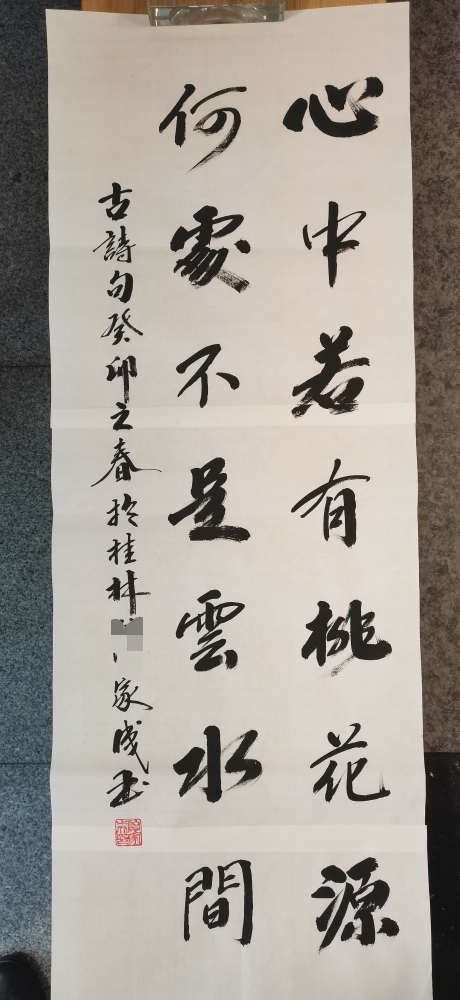 心中若有桃花源
何處不是雲水間
古詩句癸卯之春於桂林
家成書